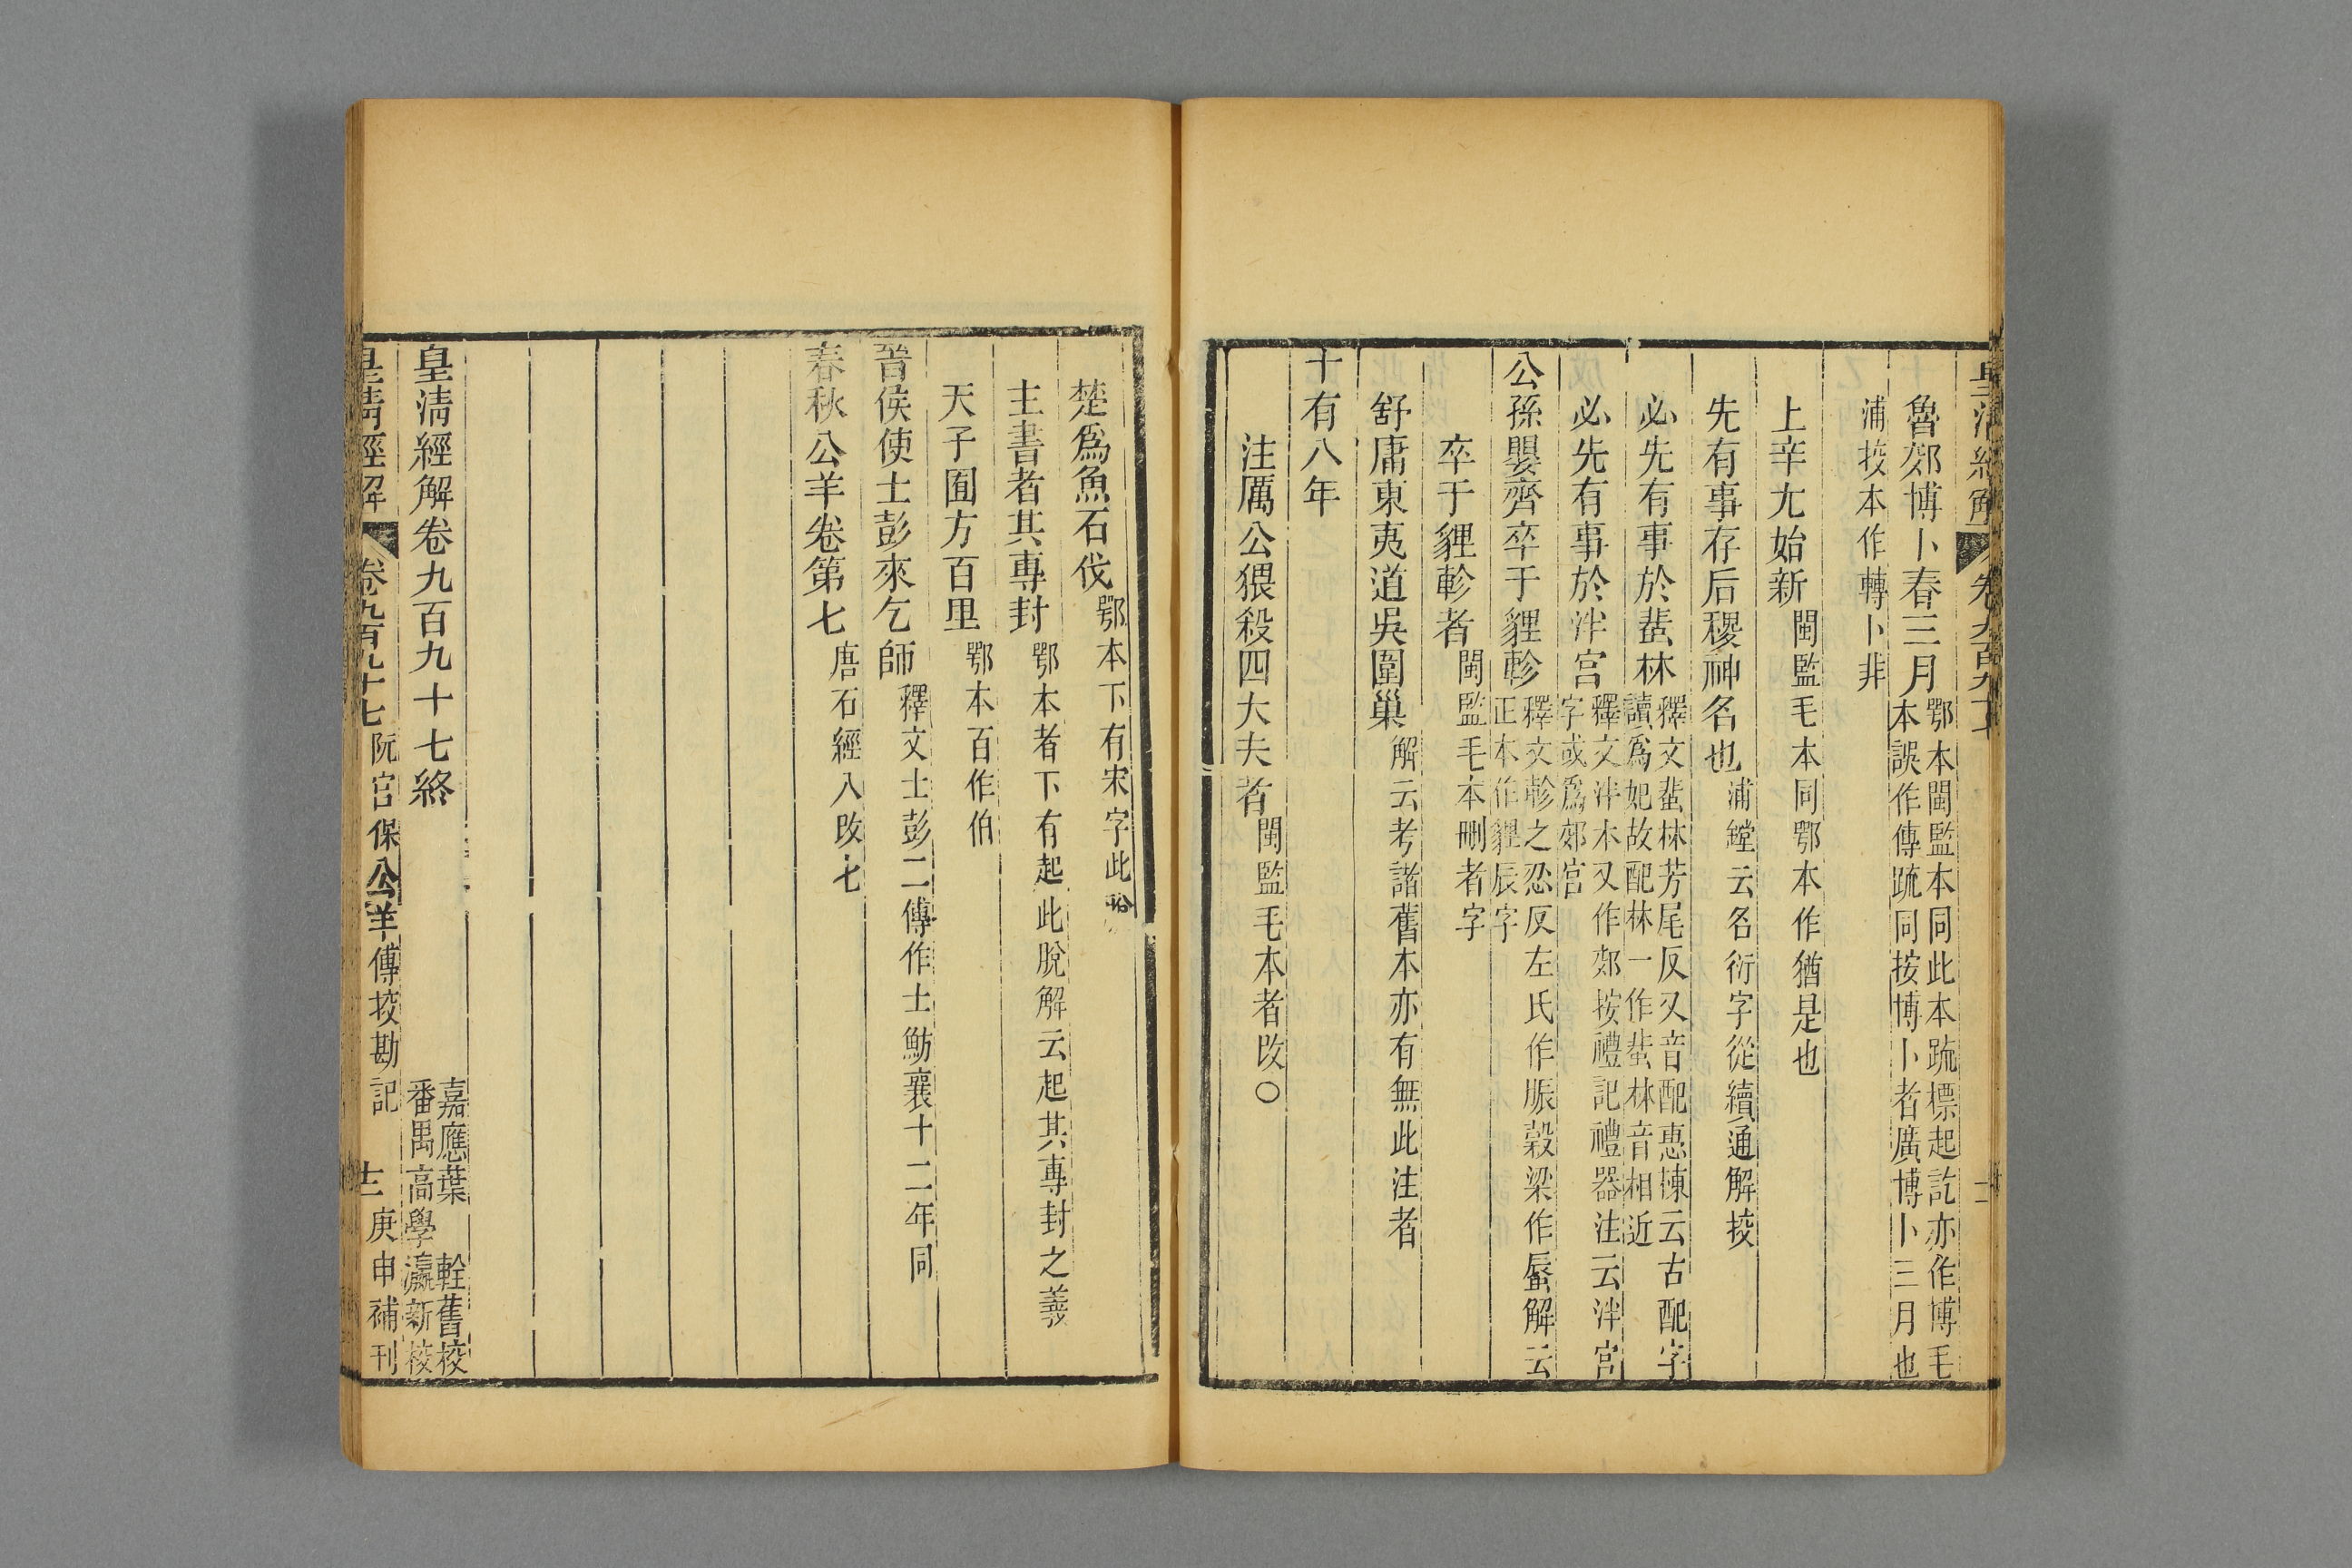 魯郊博卜春三月鄂本閩監本同此本䟽標起訖亦作博毛
本誤作傳䟽同按博卜者廣博卜三月也
浦挍本作轉卜非
上辛尢始新閩監毛本同鄂本作猶是也
先有事存后稷神名也浦鏜云名衍字從續通解挍
必先有事於蜚林釋文蜚林芳尾反又音配惠棟云古配字
讀爲妃故配林一作蜚林音相近
必先有事於泮宮釋文泮本又作郊按禮記禮器注云泮宮
字或爲郊宮
公孫嬰齊卒于貍軫釋文軫之忍反左氏作脤榖梁作蜃解云
正本作貍辰字
卒于貍軫者閩監毛本刪者字
舒庸東夷道吳圍巢解云考諸舊本亦有無此注者
十有八年
注厲公猥殺四大夫者閩監毛本者改○
楚爲魚石伐鄂本下有宋字此
主書者其專封鄂本者下有起此脫解云起其專封之義
天子囿方百里鄂本百作伯
晉侯使士彭來乞師釋文士彭二傳作士魴襄十二年同
春秋公羊卷第七唐石經八改七
皇淸經解卷九百九十七終
嘉應葉 輇舊校
番禺高學瀛新校
皇淸經解 卷九百九十七 阮宮保公羊傳挍勘記 庚申補刊